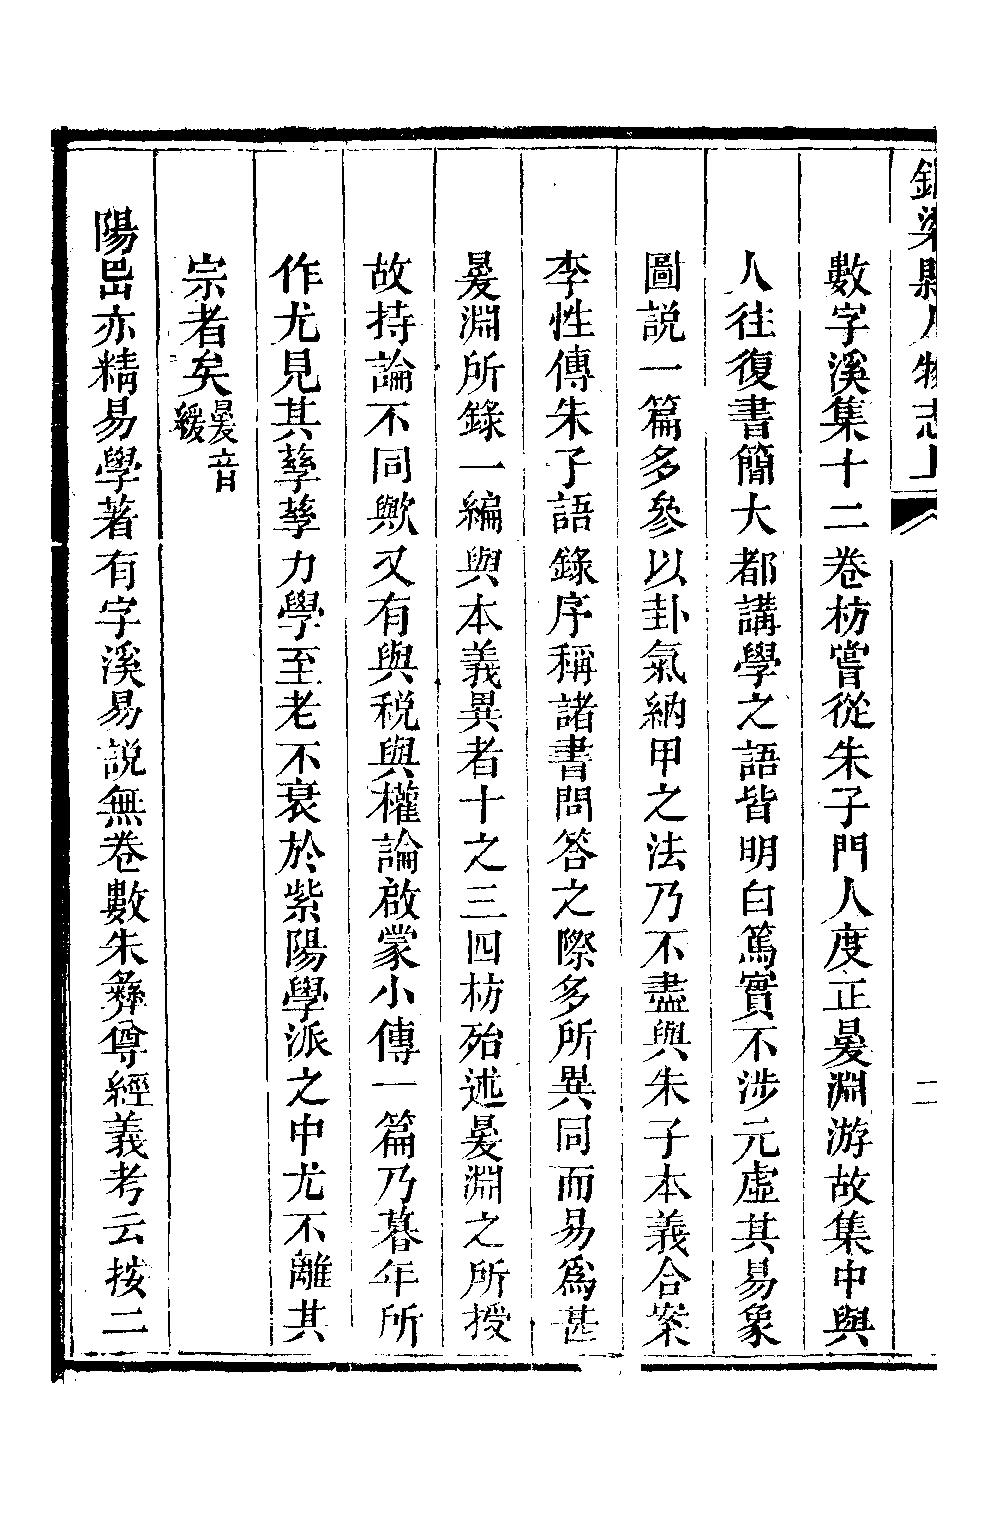 銅梁縣人物志上
二
數字溪集十二卷枋嘗從朱子門人度正㬊淵游故集中與
人往復書簡大都講學之語皆明白篤實不涉元虛其易象
圖說一篇多參以卦氣納甲之法乃不盡與朱子本義合案
李性傳朱子語錄序稱諸書問答之際多所異同而易爲甚
㬊淵所錄一編與本義異者十之三四枋殆述㬊淵之所授
故持論不同歟又有與稅與權論啟蒙小傳一篇乃暮年所
作尤見其孳孳力學至老不衰於紫陽學派之中尤不離其
宗者矣㬊音緩
陽嵒亦精易學著有字溪易說無卷數朱彝尊經義考云按二